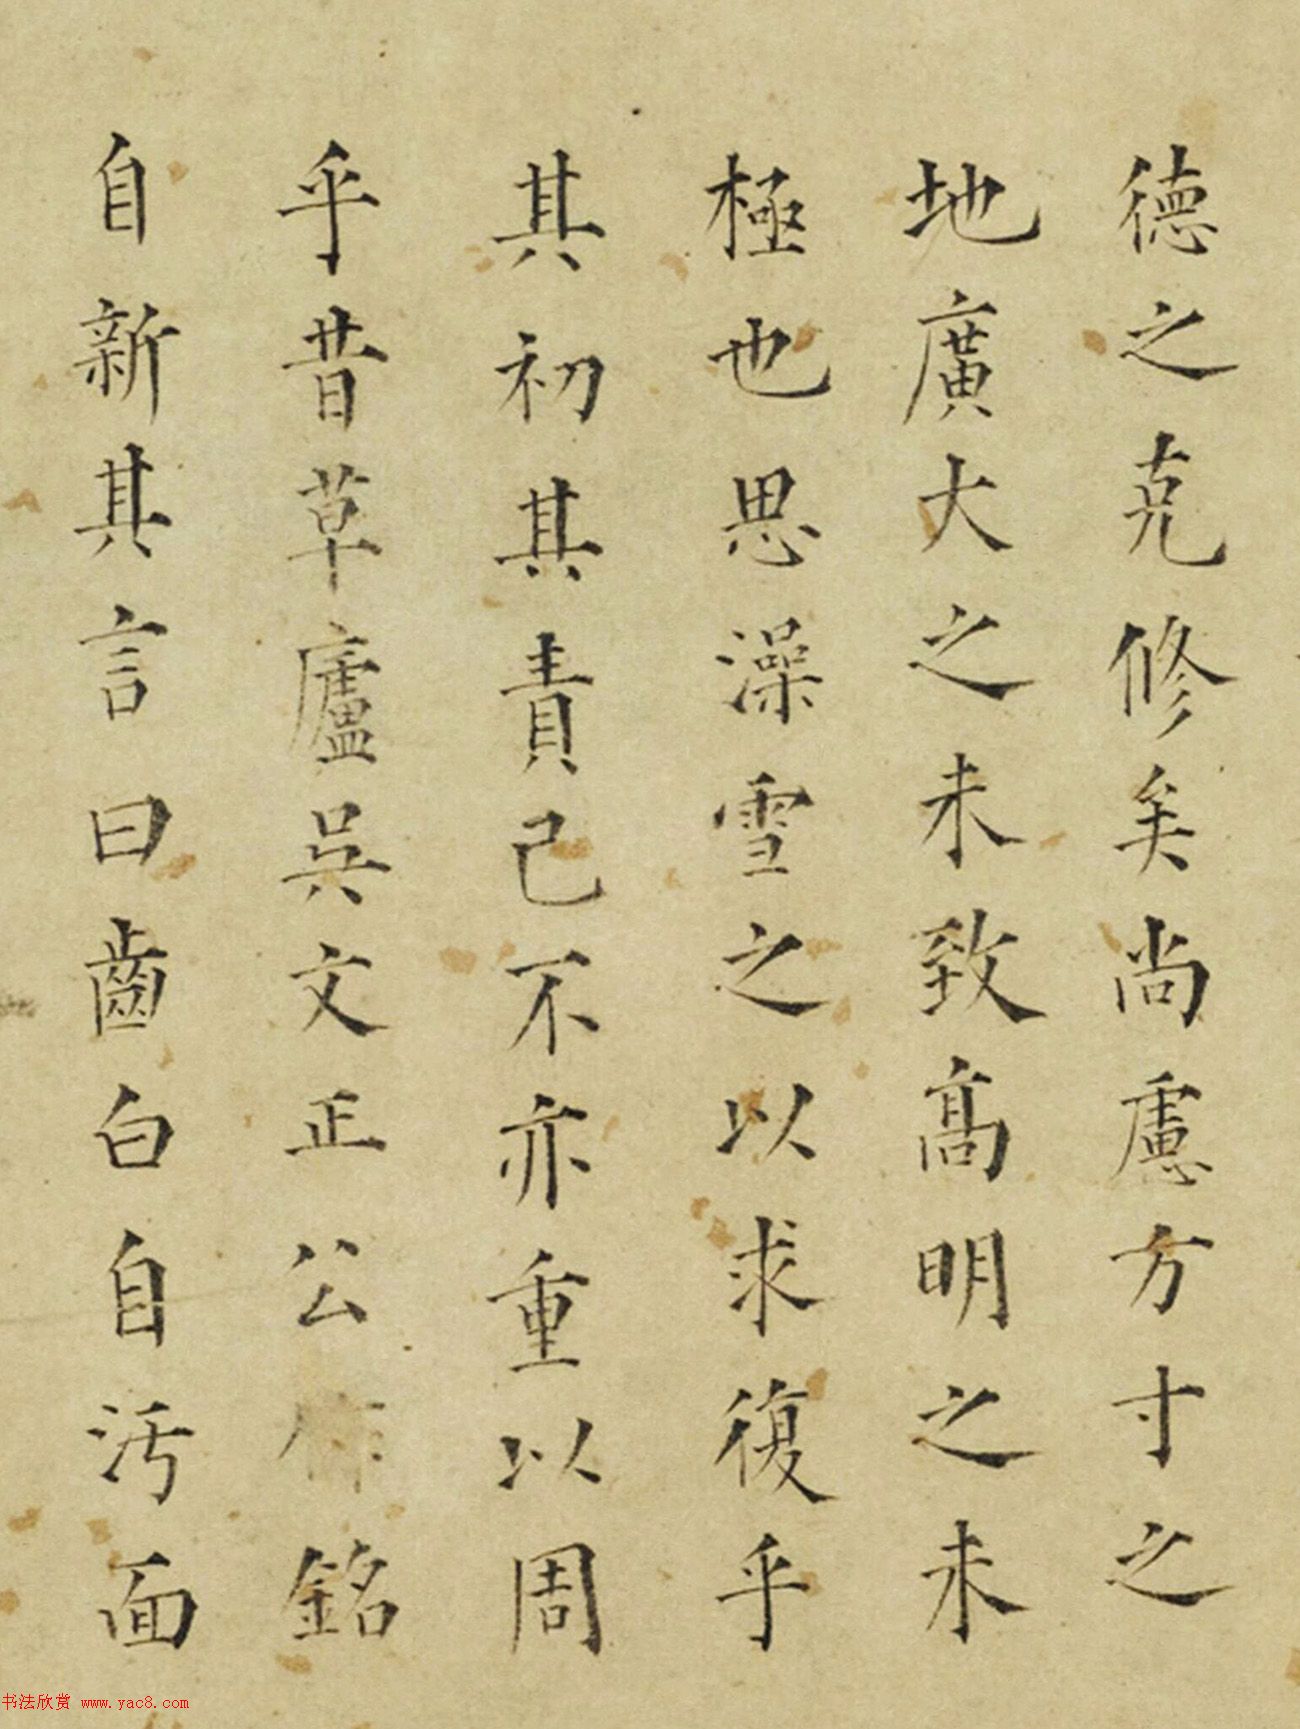 德之克修矣尚慮方寸之
地廣大之未致高明之未
極也思澡雪之以求復乎
其初其責己不亦重以周
乎昔草廬吳文正公作銘
自新其言曰齒白自污面
书法欣赏 www.yac8.com